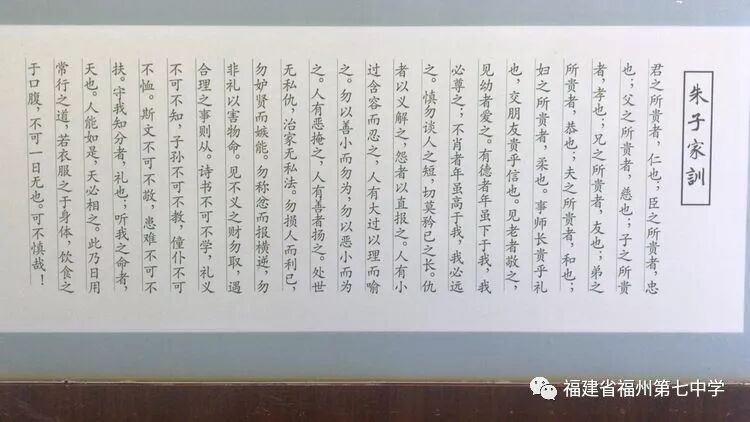 朱子家訓
君之所贵者，仁也；臣之所贵者，忠
也；父之所贵者，慈也；子之所贵
者，孝也；兄之所贵者，友也；弟之
所贵者，恭也；夫之所贵者，和也；
妇之所贵者，柔也。事师长贵乎礼
也，交朋友贵乎信也。见老者敬之，
见幼者爱之。有德者年虽下于我，我
必尊之；不肖者年虽高于我，我必远
之。慎勿谈人之短，切莫矜己之长。仇
者以义解之，怨者以直报之。人有小
过含容而忍之，人有大过以理而喻
之。勿以善小而勿为，勿以恶小而为
之。人有恶掩之，人有善者扬之。处世
无私仇，治家无私法。勿损人而利己，
勿妒贤而嫉能。勿称忿而报横逆，勿
非礼以害物命。见不义之财勿取，遇
合理之事则从。诗书不可不学，礼义
不可不知，子孙不可不教，僮仆不可
不恤。斯文不可不敬，患难不可不
扶。守我知分者，礼也；听我之命者，
天也。人能如是，天必相之。此乃日用
常行之道，若衣服之于身体，饮食之
于口腹，不可一日无也。可不慎哉！
福建省福州第七中学